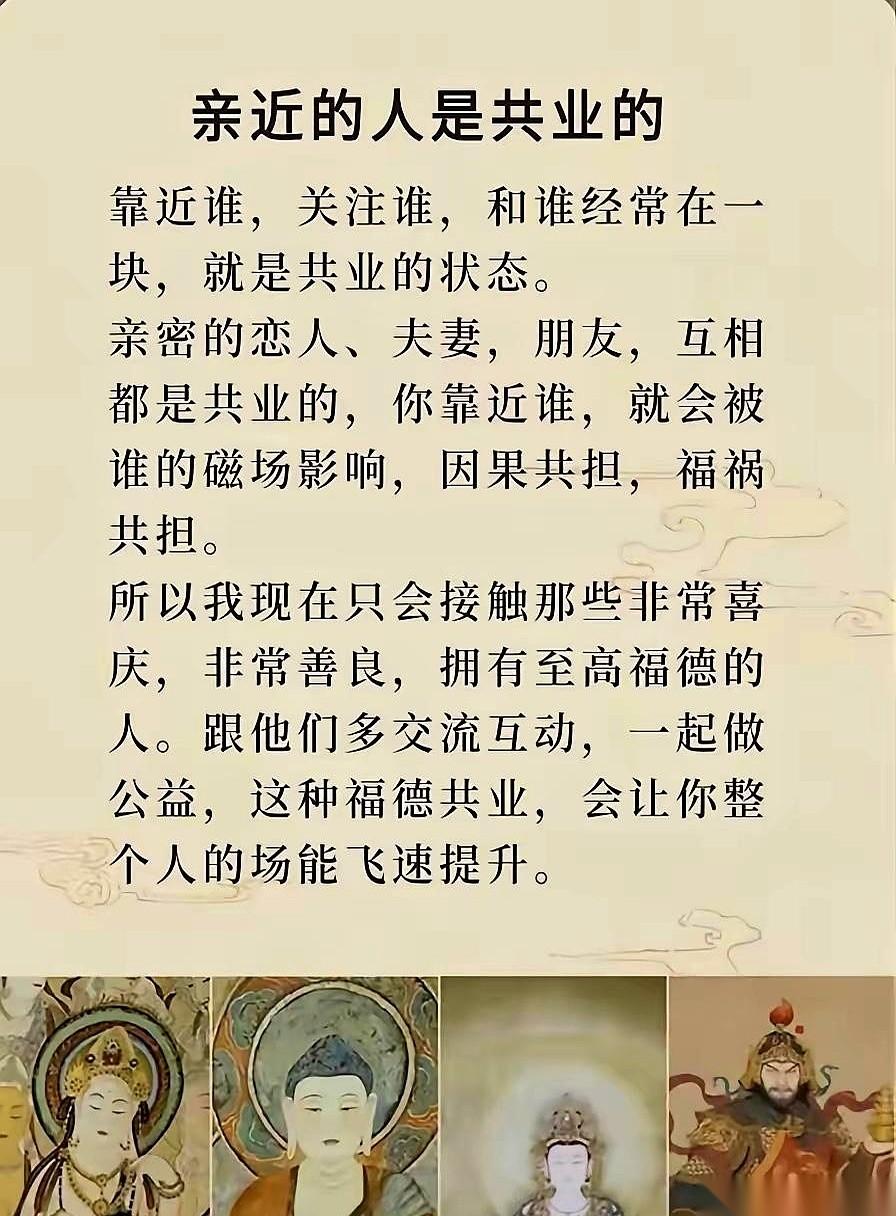 亲近的人是共业的
靠近谁，关注谁，和谁经常在一
块，就是共业的状态。
亲密的恋人、夫妻，朋友，互相
都是共业的，你靠近谁，就会被
谁的磁场影响，因果共担，福祸
共担。
所以我现在只会接触那些非常喜
庆，非常善良，拥有至高福德的
人。跟他们多交流互动，一起做
公益，这种福德共业，会让你整
个人的场能飞速提升。